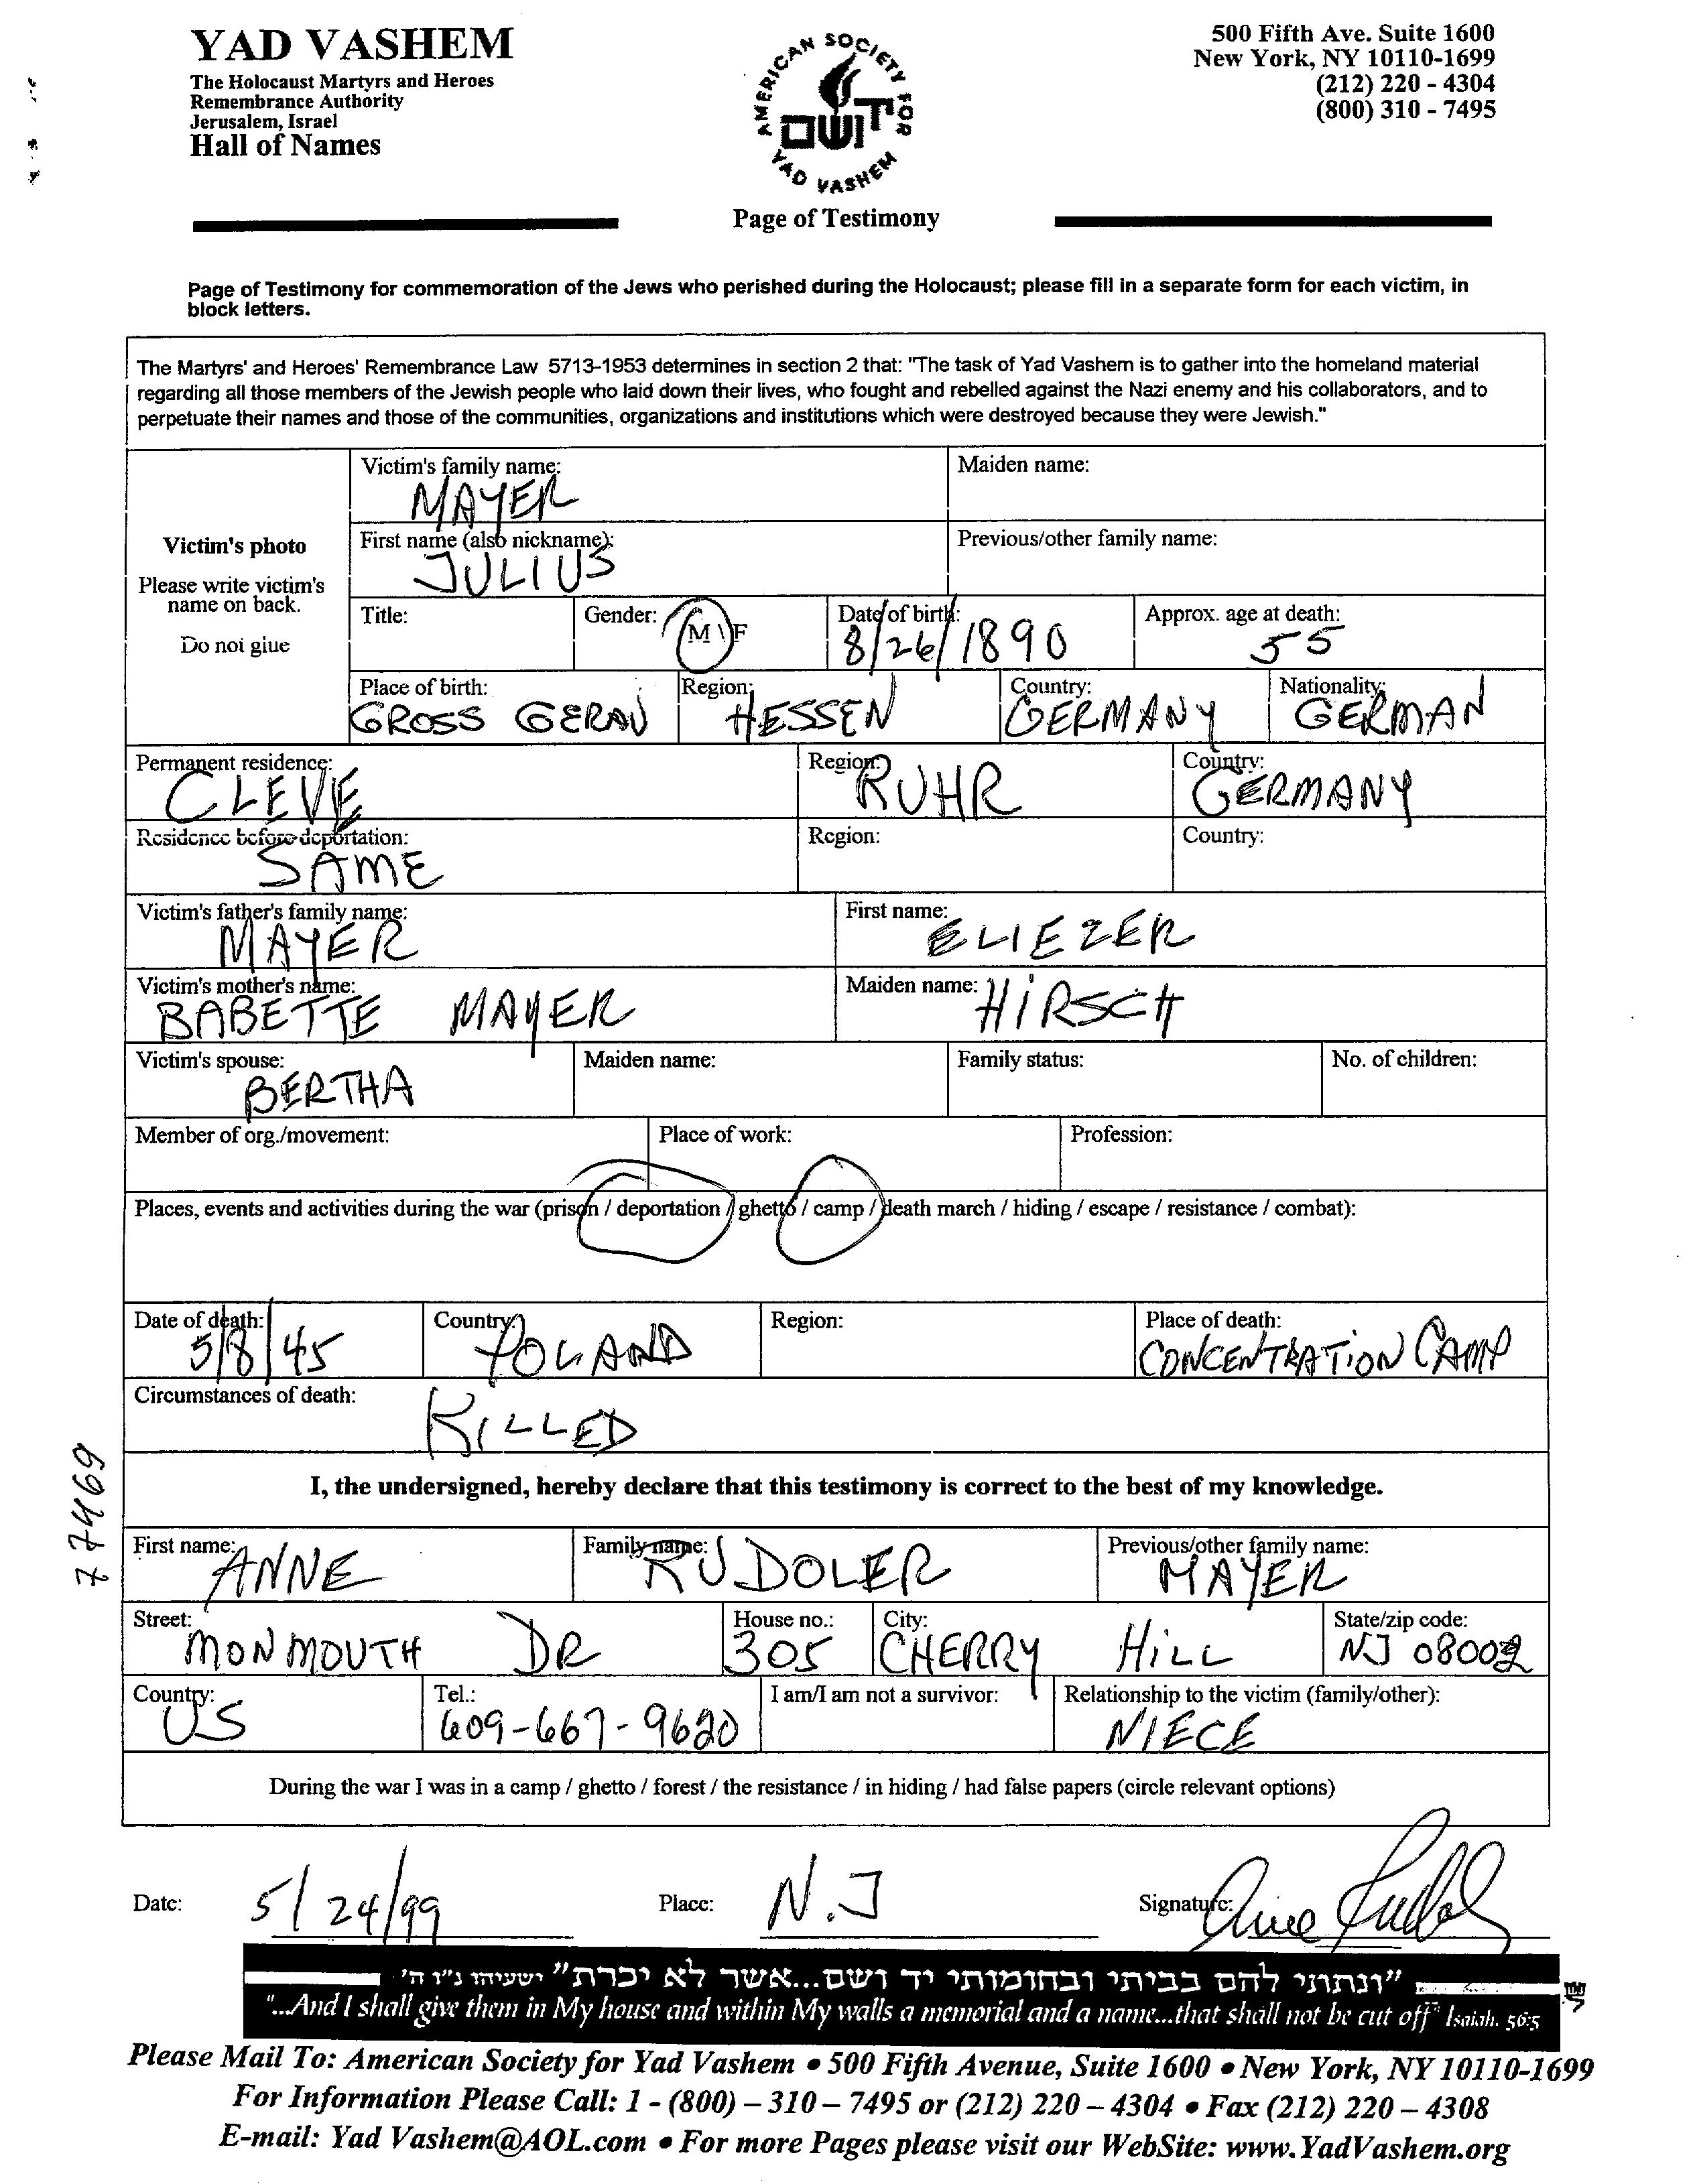 YAD VASHEM
The Holocaust Martyrs and Heroes
Remembrance Authority
Jerusalem, Israel
Hall of Names
AMERICAN SOCIETY FOR
YAD VASHEM
יד ושם
Page of Testimony
500 Fifth Ave. Suite 1600
New York, NY 10110-1699
(212) 220 - 4304
(800) 310 - 7495
Page of Testimony for commemoration of the Jews who perished during the Holocaust; please fill in a separate form for each victim, in
block letters.
The Martyrs' and Heroes' Remembrance Law 5713-1953 determines in section 2 that: "The task of Yad Vashem is to gather into the homeland material
regarding all those members of the Jewish people who laid down their lives, who fought and rebelled against the Nazi enemy and his collaborators, and to
perpetuate their names and those of the communities, organizations and institutions which were destroyed because they were Jewish."
Victim's photo
Please write victim's
name on back.
Do not glue
Victim's family name: MAYER
Maiden name:
First name (also nickname): JULIUS
Previous/other family name:
Title:
Gender: M \ F
Date of birth: 8/26/1890
Approx. age at death: 55
Place of birth: GROSS GERAU
Region: HESSEN
Country: GERMANY
Nationality: GERMAN
Permanent residence: CLEVE
Region: RUHR
Country: GERMANY
Residence before deportation: SAME
Region:
Country:
Victim's father's family name: MAYER
First name: ELIEZER
Victim's mother's name: BABETTE MAYER
Maiden name: HIRSCH
Victim's spouse: BERTHA
Maiden name:
Family status:
No. of children:
Member of org./movement:
Place of work:
Profession:
Places, events and activities during the war (prison / deportation / ghetto / camp / death march / hiding / escape / resistance / combat):
Date of death: 5/8/45
Country: POLAND
Region:
Place of death: CONCENTRATION CAMP
Circumstances of death: KILLED
77469
I, the undersigned, hereby declare that this testimony is correct to the best of my knowledge.
First name: ANNE
Family name: RUDOLER
Previous/other family name: MAYER
Street: MONMOUTH DR
House no.: 305
City: CHERRY HILL
State/zip code: NJ 08002
Country: US
Tel.: 609-667-9620
I am/I am not a survivor:
Relationship to the victim (family/other): NIECE
During the war I was in a camp / ghetto / forest / the resistance / in hiding / had false papers (circle relevant options)
Date: 5/24/99
Place: N.J
Signature: Anne Rudoler
"ונתתי להם בביתי ובחומותי יד ושם...אשר לא יכרת" ישעיהו נ"ו ה'
"...And I shall give them in My house and within My walls a memorial and a name...that shall not be cut off" Isaiah. 56:5
Please Mail To: American Society for Yad Vashem • 500 Fifth Avenue, Suite 1600 • New York, NY 10110-1699
For Information Please Call: 1 - (800) – 310 – 7495 or (212) 220 – 4304 • Fax (212) 220 – 4308
E-mail: Yad Vashem@AOL.com • For more Pages please visit our WebSite: www.YadVashem.org